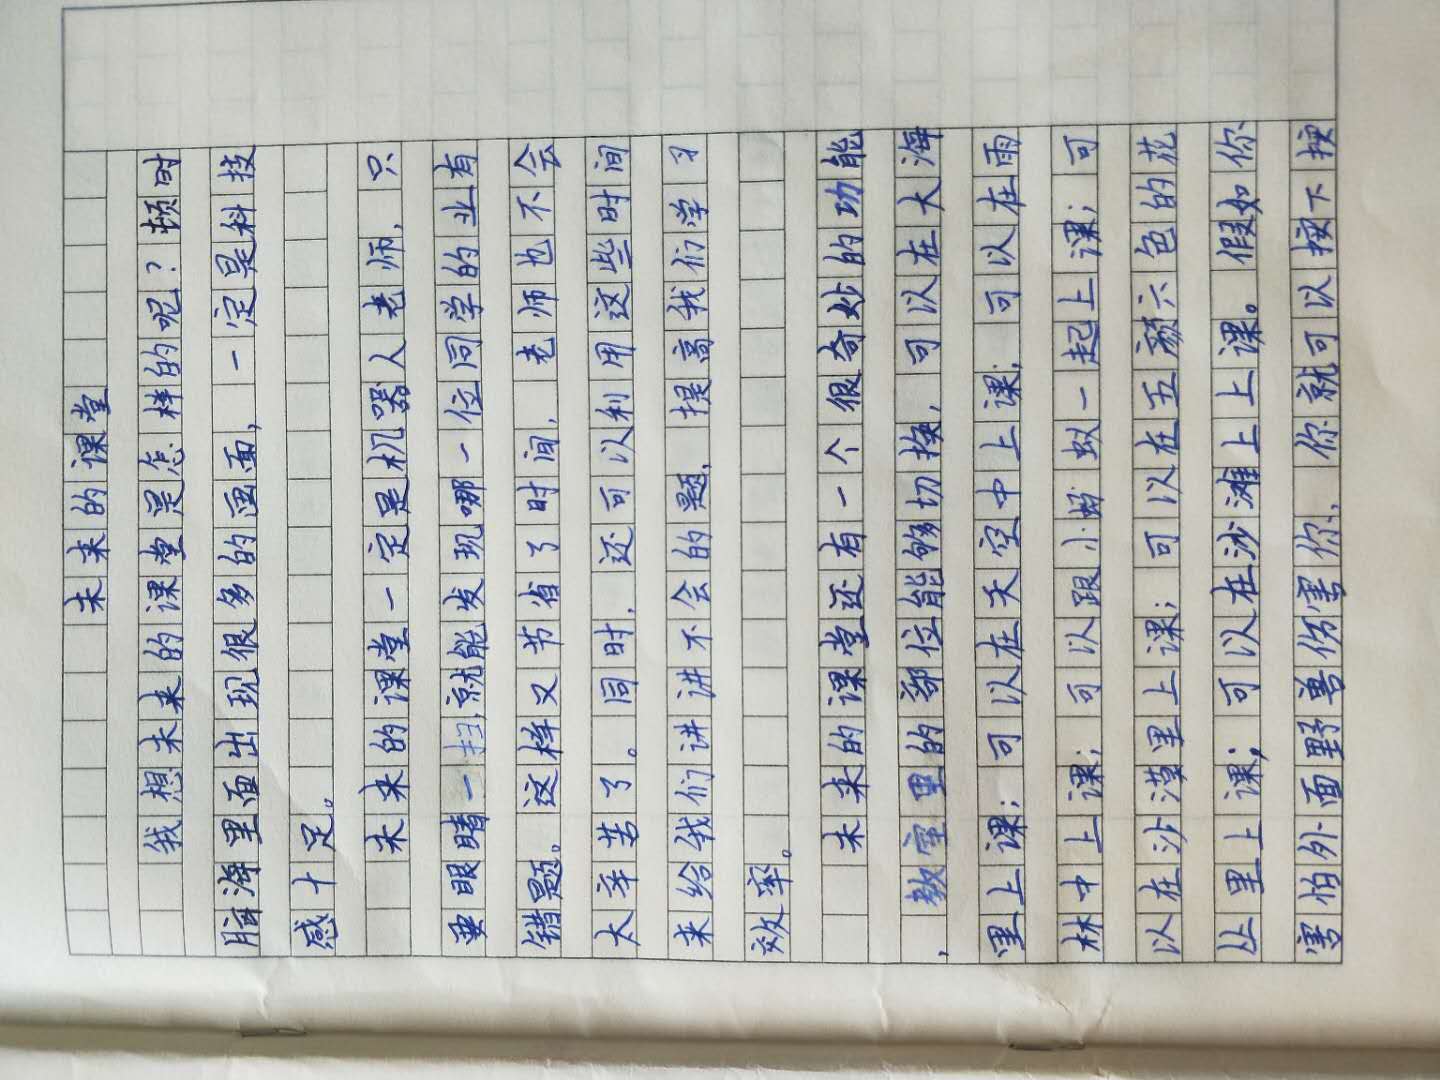 未来的课堂
我想未来的课堂是怎样的呢？顿时
脑海里面出现很多的画面，一定是科技
感十足。
未来的课堂一定是机器人老师，只
要眼睛一扫，就能发现哪一位同学的业有
错题。这样又节省了时间，老师也不会
太辛苦了。同时，还可以利用这些时间
来给我们讲讲不会的题，提高我们学习
效率。
未来的课堂还有一个很奇妙的功能
，教室里的部位能够切换，可以在大海
里上课；可以在天空中上课，可以在雨
林中上课；可以跟小蚂蚁一起上课；可
以在沙漠里上课；可以在五颜六色的花
丛里上课；可以在沙滩上上课。假如你
害怕外面野兽伤害你，你就可以按下按